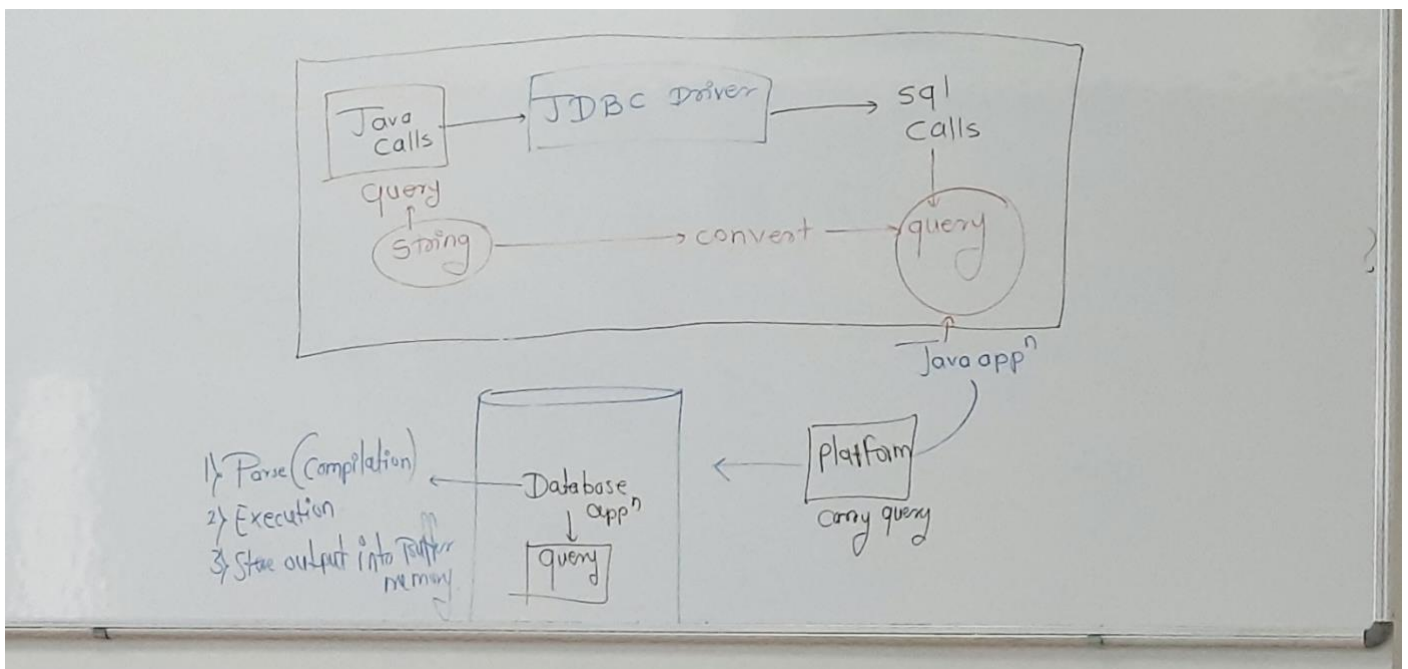 Java
Calls
JDBC Driver
sql
calls
query
String
convert
query
Java appⁿ
Platform
Carry query
Database
appⁿ
query
1) Parse (Compilation)
2) Execution
3) Store output into Buffer
memory